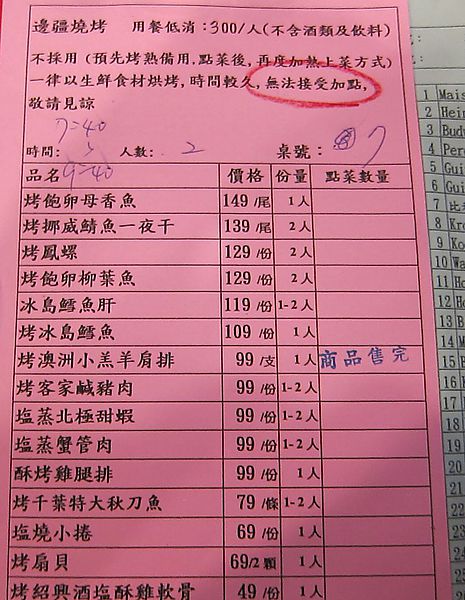 邊疆燒烤 用餐低消:300/人(不含酒類及飲料)
不採用(預先烤熟備用,點菜後,再度加熱上菜方式)
一律以生鮮食材烘烤,時間較久,無法接受加點,
敬請見諒
7=40
時間: 人數: 2 桌號: 7
9=40
品名 價格 份量 點菜數量
烤飽卵母香魚 149/尾 1人
烤挪威鯖魚一夜干 139/尾 2人
烤鳳螺 129/份 2人
烤飽卵柳葉魚 129/份 2人
冰島鱈魚肝 119/份 1-2人
烤冰島鱈魚 109/份 1人
烤澳洲小羔羊肩排 99/支 1人 商品售完
烤客家鹹豬肉 99/份 1-2人
塩蒸北極甜蝦 99/份 1-2人
塩蒸蟹管肉 99/份 1-2人
酥烤雞腿排 99/份 1人
烤千葉特大秋刀魚 79/條 1-2人
塩燒小捲 69/份 1人
烤扇貝 69/2顆 1人
烤紹興酒塩酥雞軟骨 49/份 1人
1 Mais
2 Hein
3 Budw
4 Per
5 Gui
6 Gui
7 比
8 Kro
9 Ko
10 Wa
11 Ho
12 Ho
13 B
14 M
15 B
16
17
18
19
20
21
22
23
24